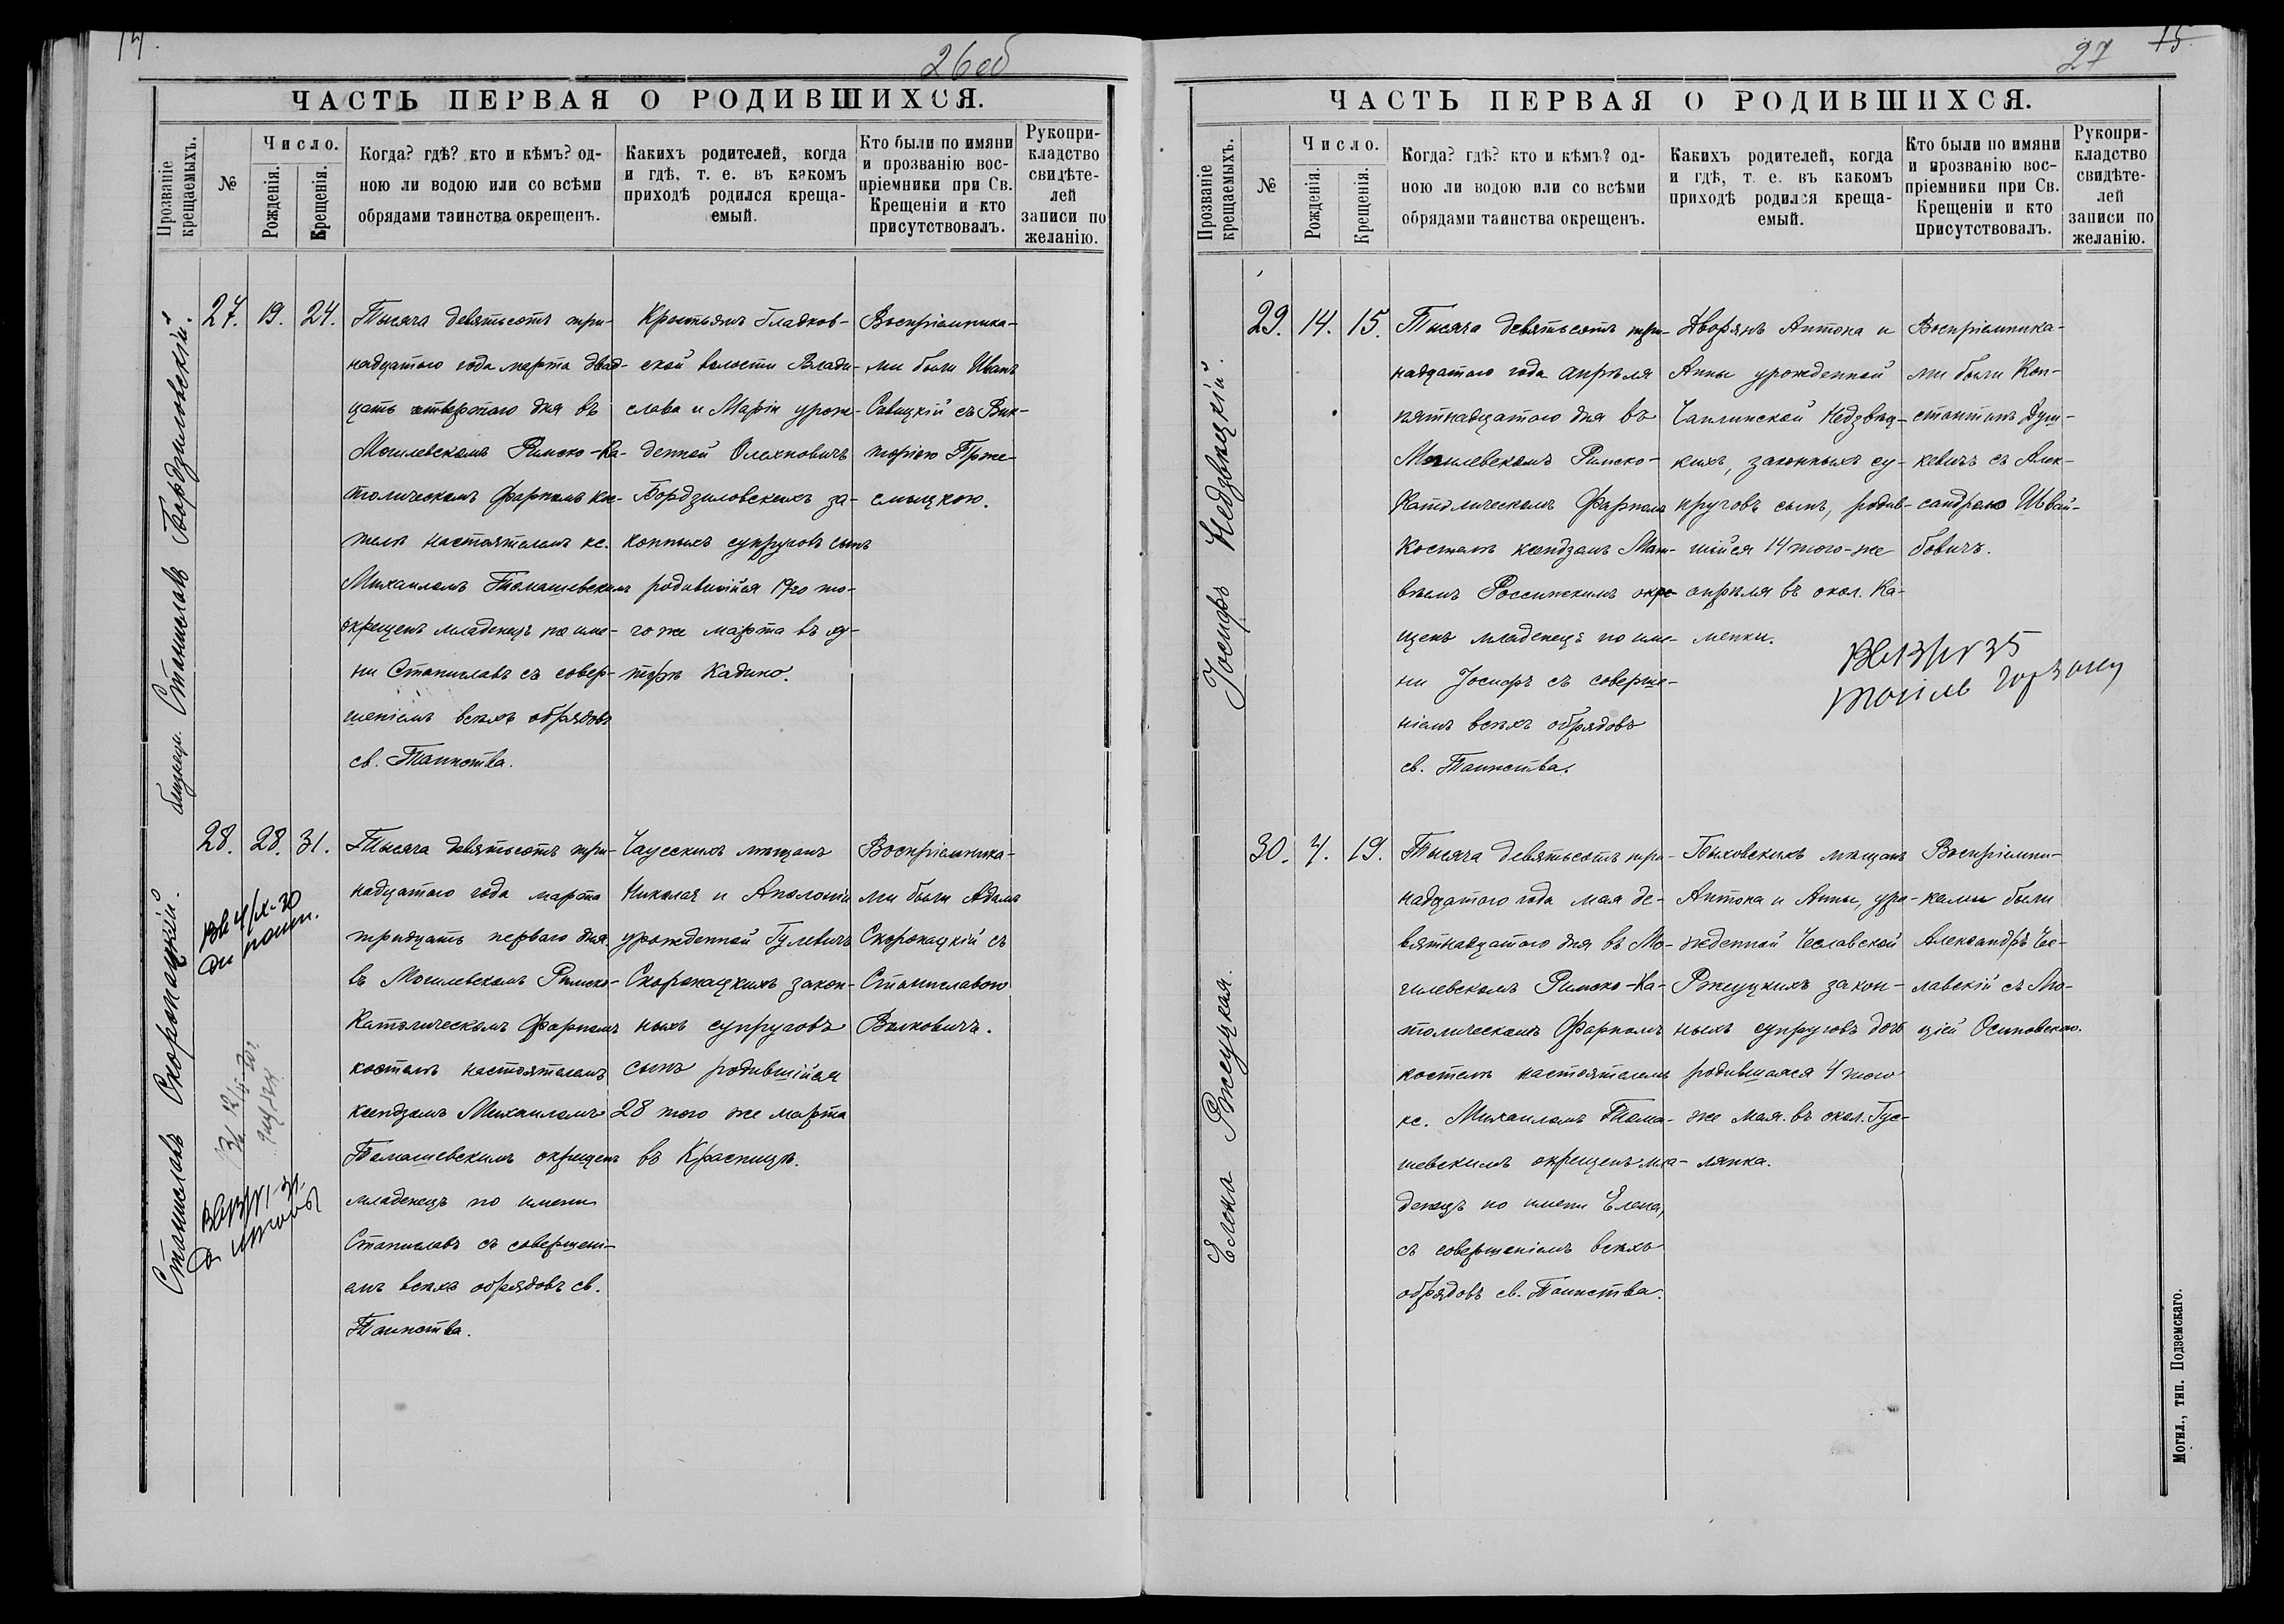 14.
26 об
ЧАСТЬ ПЕРВАЯ О РОДИВШИХСЯ.
Прозваніе крещаемыхъ.
№
Число.
Рожденія.
Крещенія.
Когда? гдѣ? кто и кѣмъ? од-
ною ли водою или со всѣми
обрядами таинства окрещенъ.
Какихъ родителей, когда
и гдѣ, т. е. въ какомъ
приходѣ родился креща-
емый.
Кто были по имяни
и прозванію вос-
пріемники при Св.
Крещеніи и кто
присутствовалъ.
Рукопри-
кладство
свидѣте-
лей
записи по
желанію.
Станиславъ Бордзиловскій.
27. 19. 24.
Тысяча девятьсотъ три-
надцатого года марта двад-
цать четвертого дня въ
Могилевскомъ Римско-Ка-
толическомъ Фарномъ кос-
телѣ настоятелемъ кс.
Михаиломъ Томашевскимъ
окрещенъ младенецъ по име-
ни Станиславъ съ совер-
шеніемъ всѣхъ обрядовъ
св. Таинства.
Крестьянъ Гладков-
ской волости Влади-
слава и Маріи урож-
денной Олехновичъ
Бордзиловскихъ за-
конныхъ супруговъ сынъ
родившійся 19го то-
го же марта въ ху-
торѣ Кадино.
Воспріемника-
ми были Иванъ
Савицкій съ Вик-
торіею Прже-
смыцкою.
Станиславъ Скоропацкій.
28. 28. 31.
Тысяча девятьсотъ три-
надцатого года марта
тридцать перваго дня
въ Могилевскомъ Римско-
Католическомъ Фарномъ
костелѣ настоятелемъ
ксендзомъ Михаиломъ
Томашевскимъ окрещенъ
младенецъ по имени
Станиславъ съ совершені-
емъ всѣхъ обрядовъ св.
Таинства.
Чаусскихъ мѣщанъ
Николая и Аполоніи
урожденной Гулевичъ
Скоропацкихъ закон-
ныхъ супруговъ
сынъ родившійся
28 того же марта
въ Красницѣ.
Воспріемника-
ми были Адамъ
Скоропацкій съ
Станиславою
Валковичъ.
27
15.
ЧАСТЬ ПЕРВАЯ О РОДИВШИХСЯ.
Прозваніе крещаемыхъ.
№
Число.
Рожденія.
Крещенія.
Когда? гдѣ? кто и кѣмъ? од-
ною ли водою или со всѣми
обрядами таинства окрещенъ.
Какихъ родителей, когда
и гдѣ, т. е. въ какомъ
приходѣ родился креща-
емый.
Кто были по имяни
и прозванію вос-
пріемники при Св.
Крещеніи и кто
присутствовалъ.
Рукопри-
кладство
свидѣте-
лей
записи по
желанію.
Іосифъ Недзвецкій.
29. 14. 15.
Тысяча девятьсотъ три-
надцатого года апрѣля
пятнадцатого дня въ
Могилевскомъ Римско-
Католическомъ Фарномъ
Костелѣ ксендзомъ Мат-
вѣемъ Россинскимъ окре-
щенъ младенецъ по име-
ни Іосифъ съ соверше-
ніемъ всѣхъ обрядовъ
св. Таинства.
Дворянъ Антона и
Анны урожденной
Чаплинской Недзвец-
кихъ, законныхъ су-
пруговъ сынъ, родив-
шійся 14 того-же
апрѣля въ окол. Ка-
менки.
Воспріемника-
ми были Кон-
стантинъ Душ-
кевичъ съ Алек-
сандрою Швай-
бовичъ.
Елена Ржецуцкая.
30. 4. 19.
Тысяча девятьсотъ три-
надцатого года мая де-
вятнадцатого дня въ Мо-
гилевскомъ Римско-Ка-
толическомъ Фарномъ
костелѣ настоятелемъ
кс. Михаиломъ Тома-
шевскимъ окрещенъ мла-
денецъ по имени Елена,
съ совершеніемъ всѣхъ
обрядовъ св. Таинства.
Быховскихъ мѣщанъ
Антона и Анны, уро-
жденной Чеславской
Ржецуцкихъ закон-
ныхъ супруговъ дочь
родившаяся 4 того
же мая въ окол. Гус-
лянка.
Воспріемни-
ками были
Александръ Чес-
лавскій съ Лю-
ціей Осиповскою.
Могил., тип. Подземскаго.